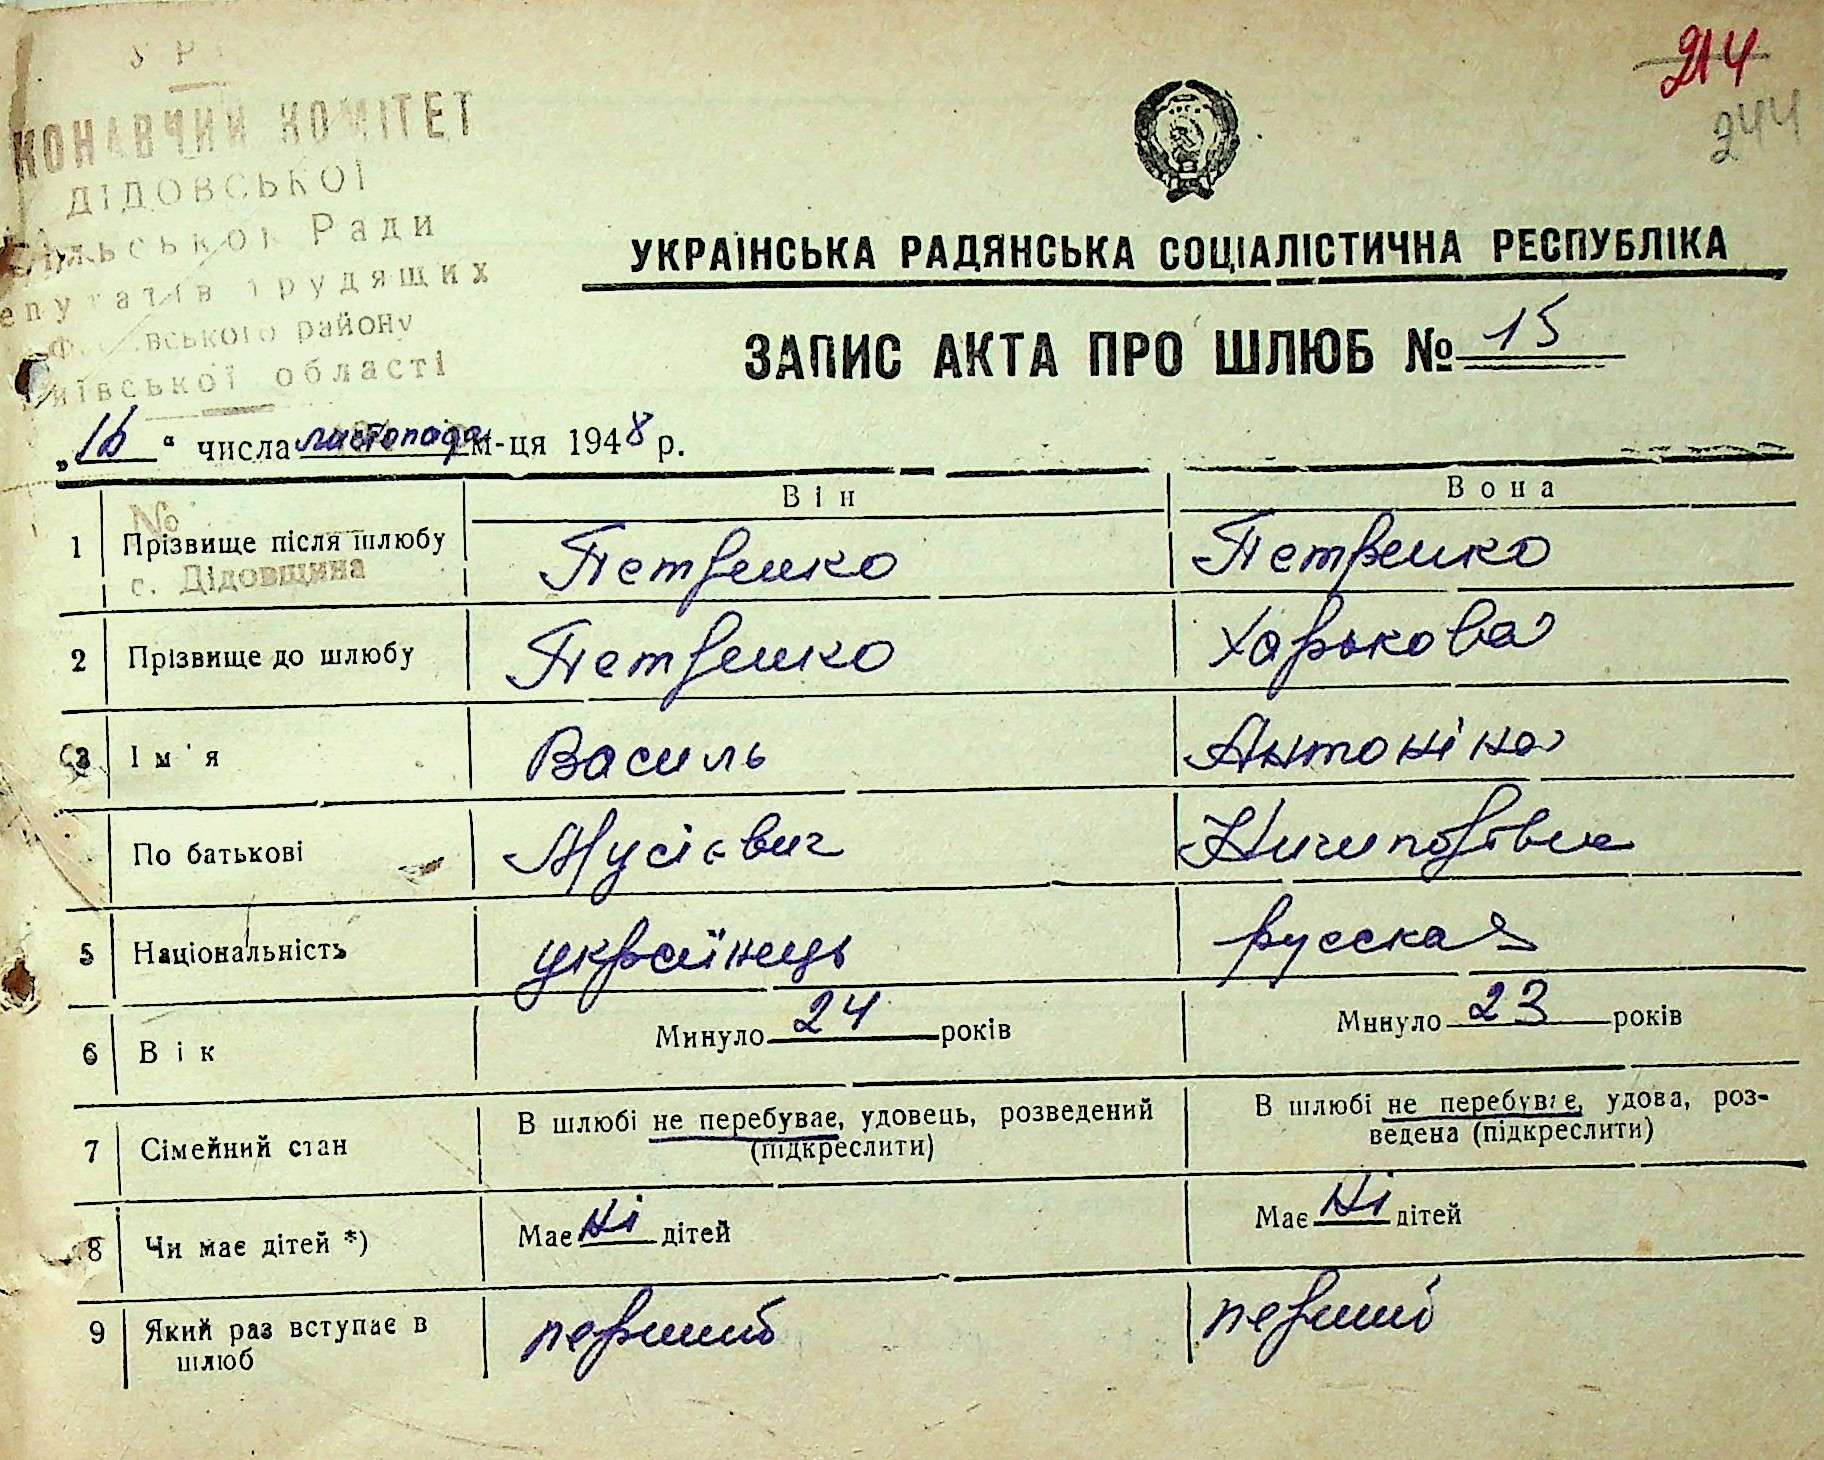 214
244
КОНАВЧИЙ КОМІТЕТ
ДІДОВСЬКОЇ
сільської Ради
епутатів трудящих
вського району
иївської області
УКРАЇНСЬКА РАДЯНСЬКА СОЦІАЛІСТИЧНА РЕСПУБЛІКА
ЗАПИС АКТА ПРО ШЛЮБ № 15
„16“ числа листопада м-ця 1948 р.
Він Вона
№
1 Прізвище після шлюбу Петренко Петренко
с. Дідовщина
2 Прізвище до шлюбу Петренко Харькова
3 Ім'я Василь Антоніна
По батькові Мусієвич Ничипорівна
5 Національність українець русская
6 Вік Минуло 24 років Минуло 23 років
7 Сімейний стан В шлюбі не перебуває, удовець, розведений (підкреслити) В шлюбі не перебуває, удова, роз-
ведена (підкреслити)
8 Чи має дітей *) Має Ні дітей Має Ні дітей
9 Який раз вступає в шлюб перший перший